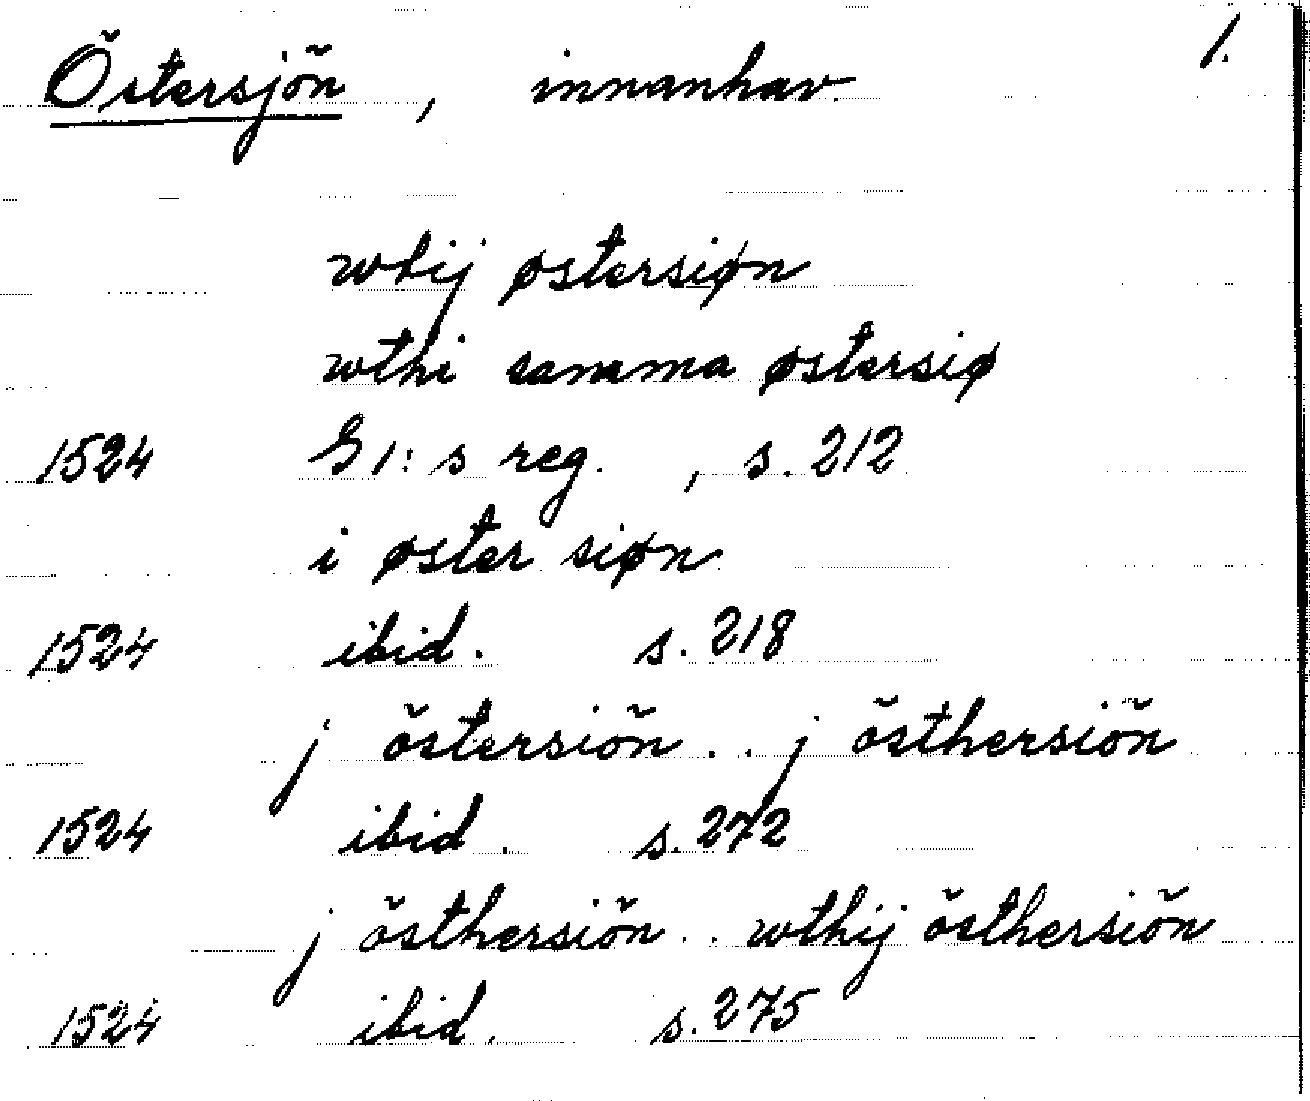 Östersjön , innanhav. 1.
wtij østersiøn
wthi samma østersiø
1524 G1:s reg. , s. 212
i øster siøn
1524 ibid. s. 218
j östersiön . . j östhersiön
1524 ibid. s. 272
j östhersiön . . wthij östhersiön
1524 ibid. s. 275